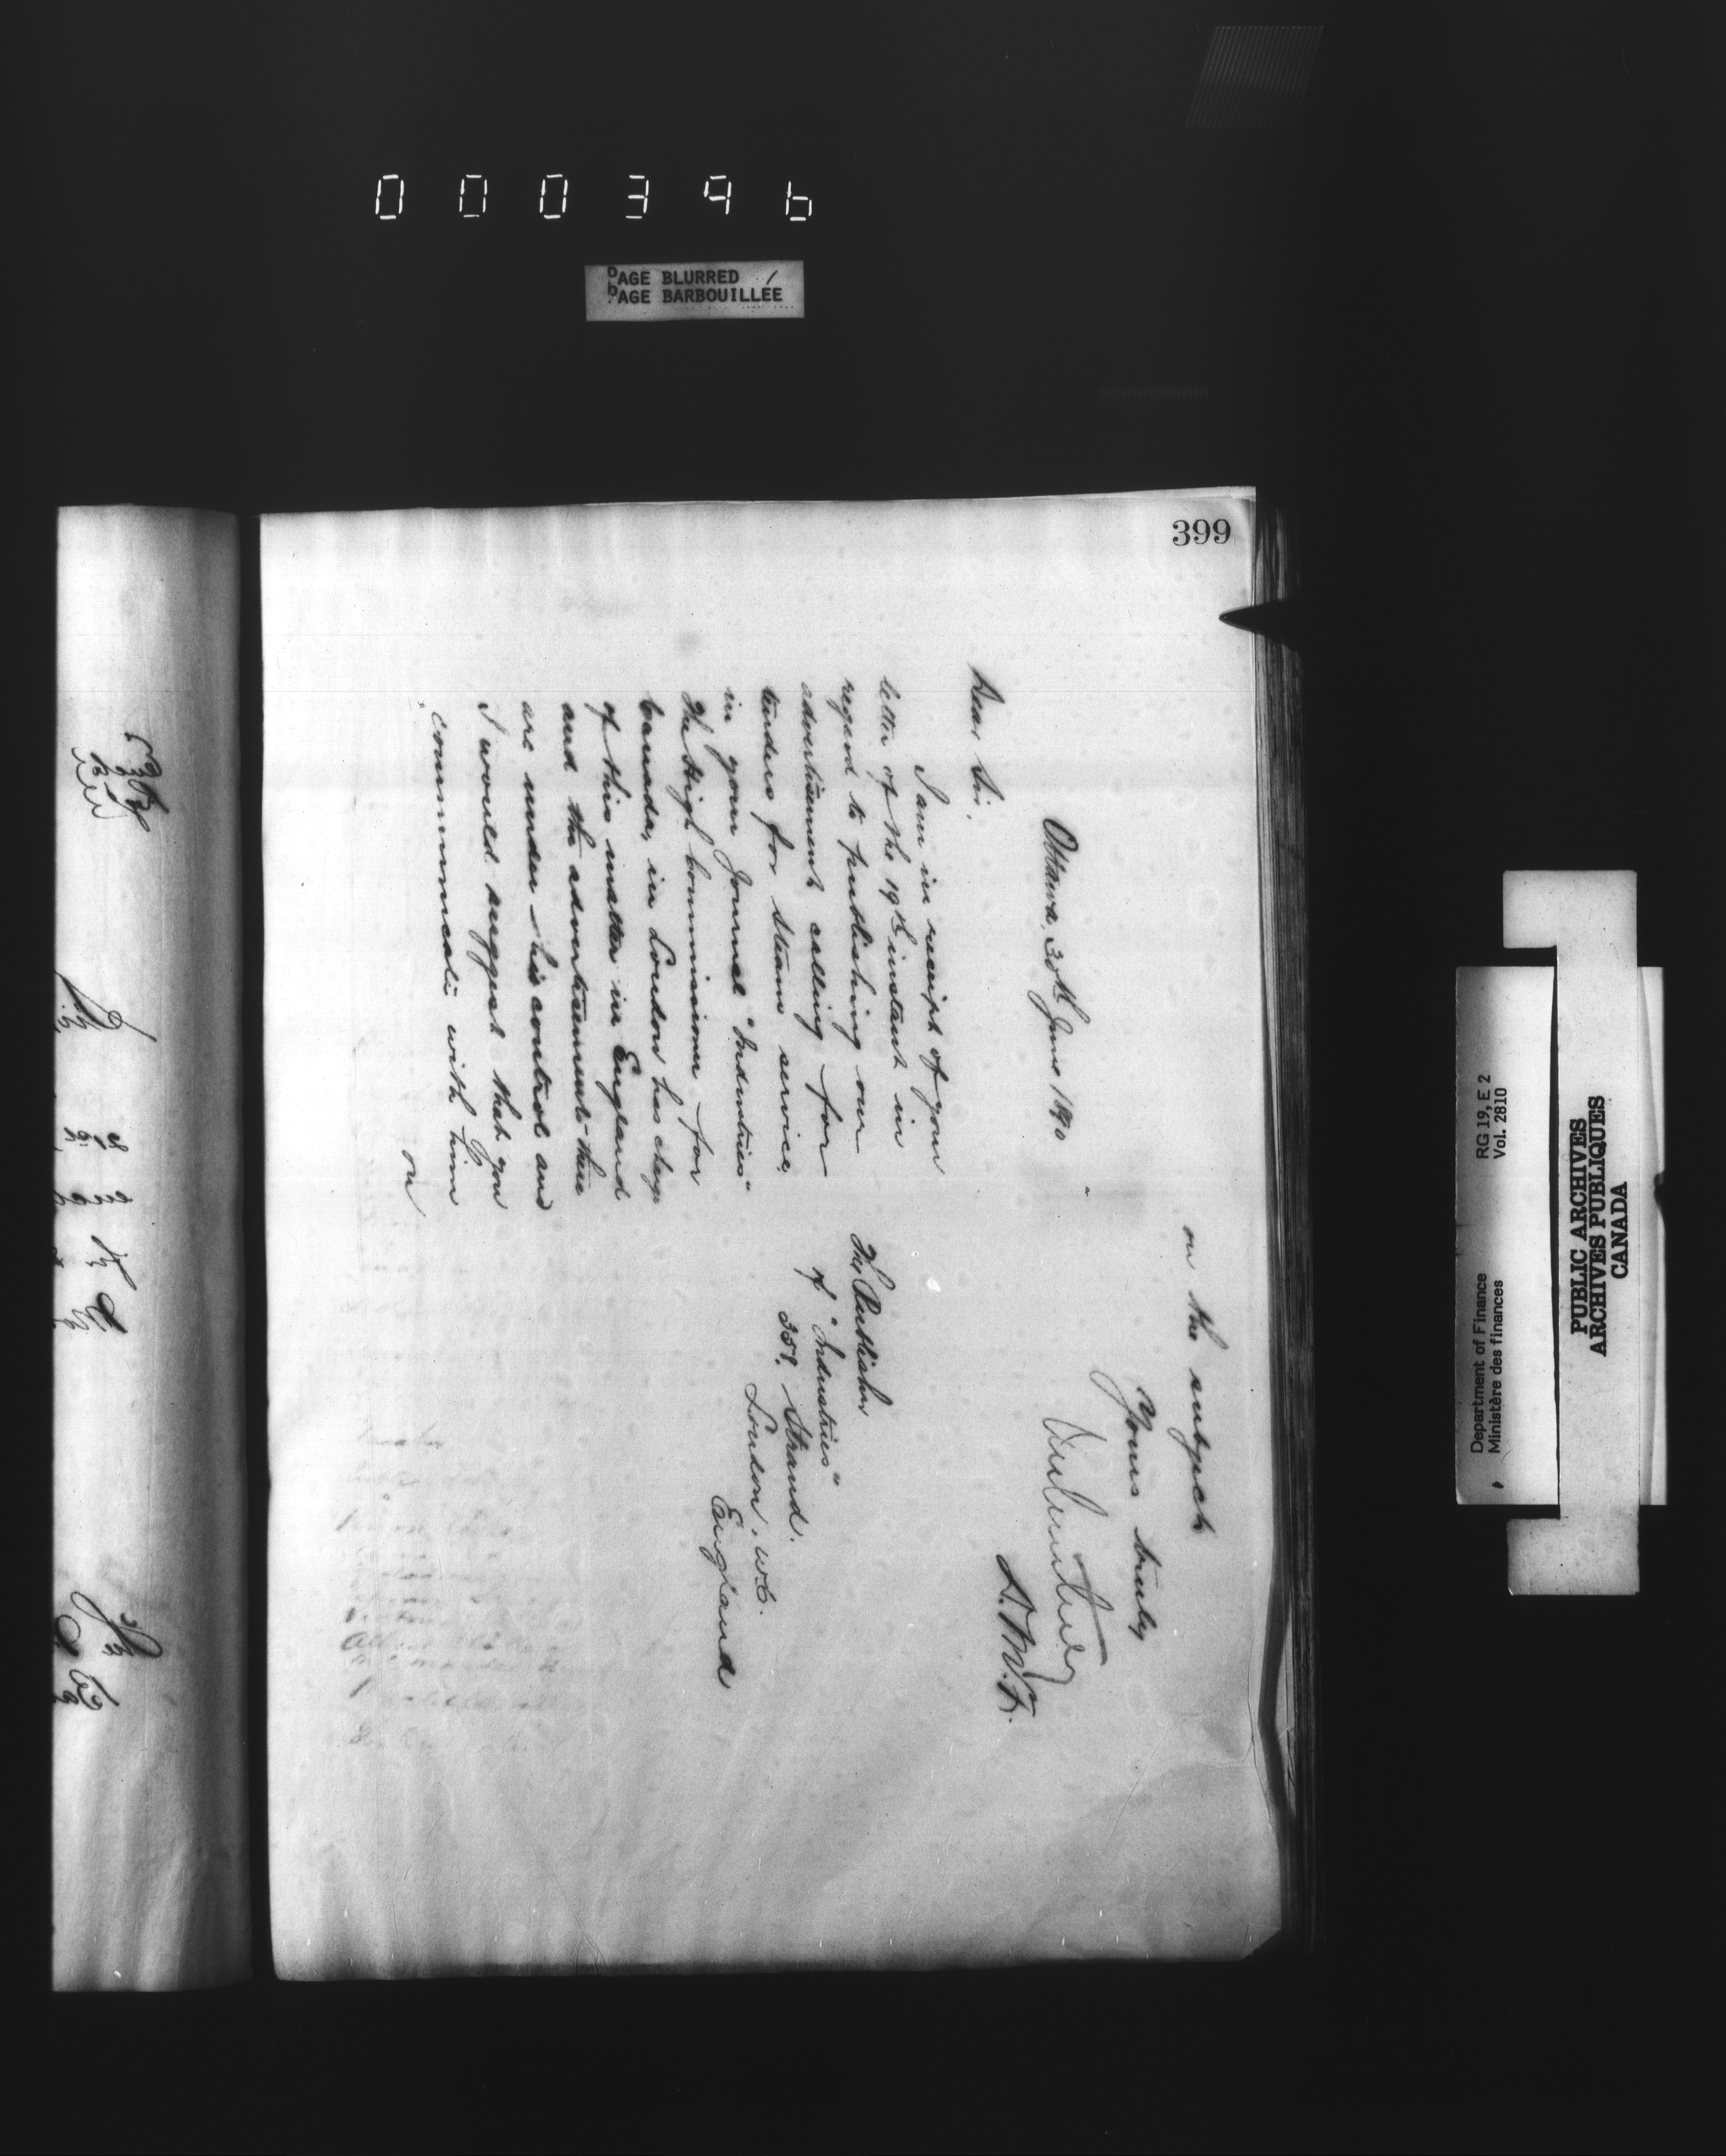 000396
PAGE BLURRED /
PAGE BARBOUILLÉE
399
Ottawa, 30th June 1890
Dear Sir,
I am in receipt of your
letter of the 19th instant in
regard to publishing our
advertisement calling for
tenders for steam service,
in your Journal "Industries"
The High Commissioner for
Canada, in London has charge
of this matter in England
and the advertisements there
are under his control and
I would suggest that you
communicate with him
on
on the subject
Yours truly
D.M.F.
The Publisher
of "Industries"
358, Strand.
London, W.C.
England
RG 19, E 2
Vol. 2810
Department of Finance
Ministère des finances
PUBLIC ARCHIVES
ARCHIVES PUBLIQUES
CANADA